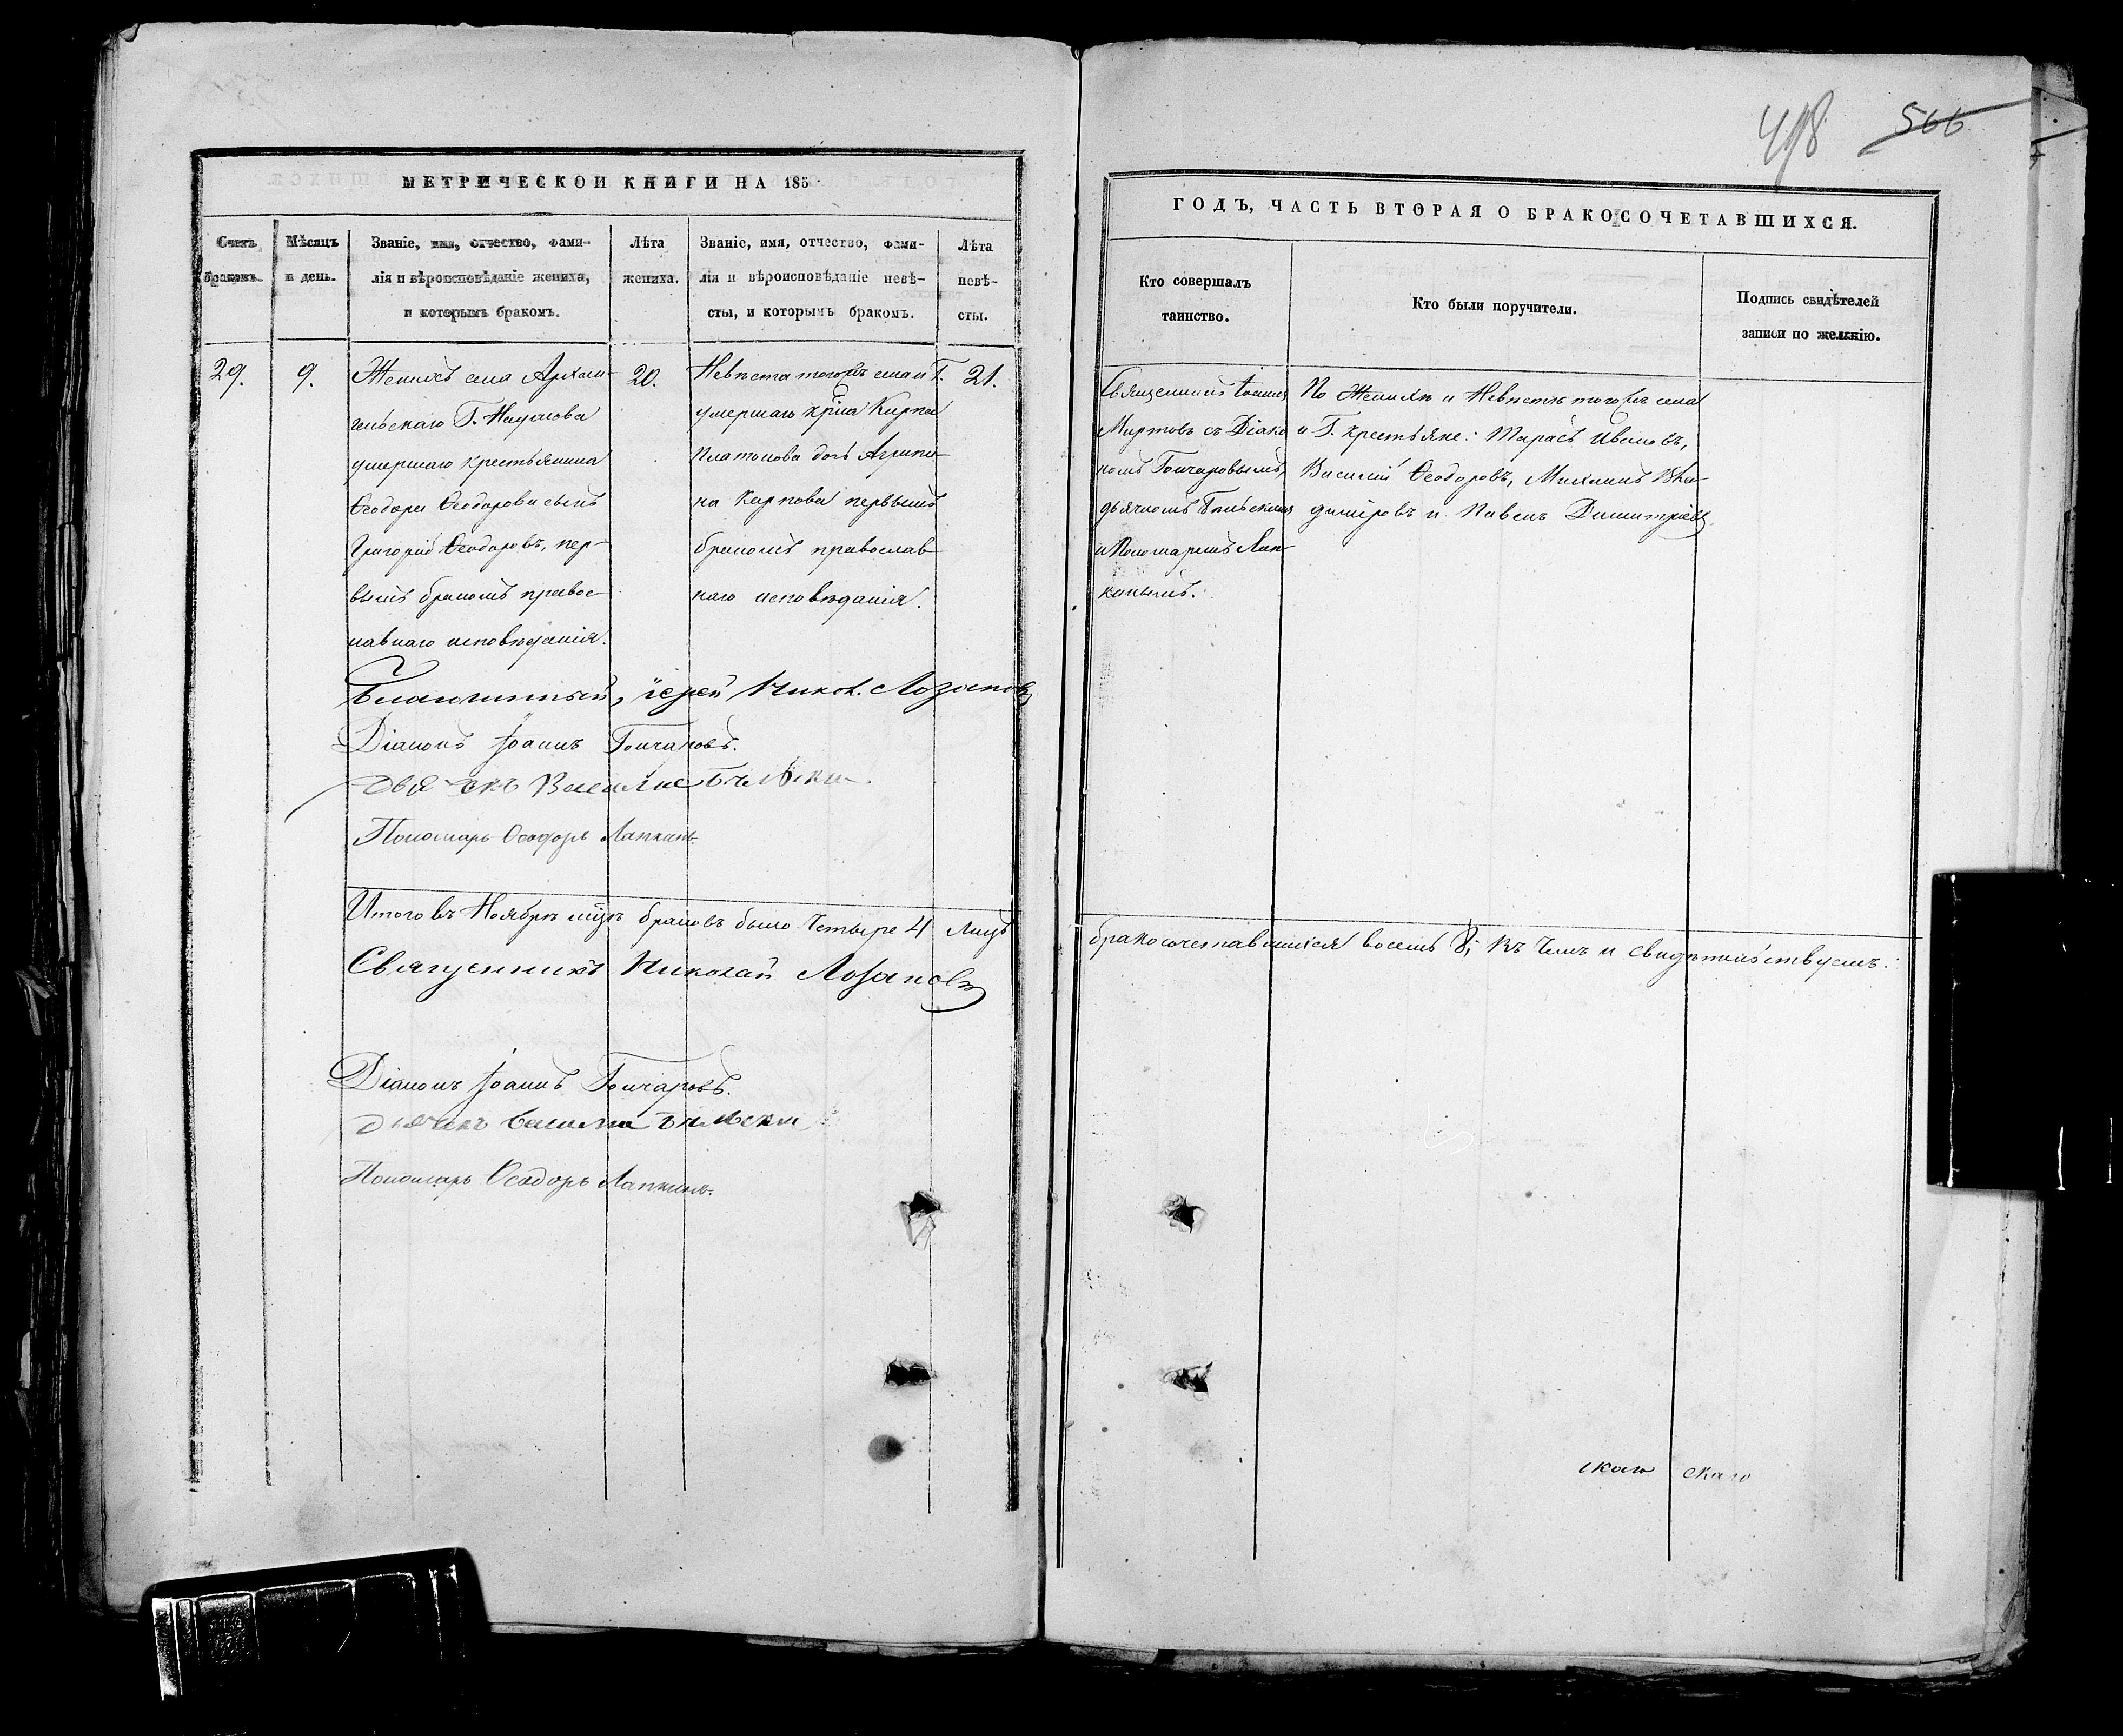 498 566
МЕТРИЧЕСКОЙ КНИГИ НА 185
Счетъ браковъ.
Мѣсяцъ и день.
Званіе, имя, отчество, фами-
лія и вѣроисповѣданіе жениха,
и которымъ бракомъ.
Лѣта жениха.
Званіе, имя, отчество, фами-
лія и вѣроисповѣданіе невѣ-
сты, и которымъ бракомъ.
Лѣта невѣ-
сты.
29.
9.
Женихъ села Архан-
гельскаго Г. Наумова
умершаго крестьянина
Ѳеодора Ѳеодорова сынъ
Григорій Ѳеодоровъ, пер-
вымъ бракомъ правос-
лавнаго исповѣданія.
20.
Невѣста того жъ села и Г.
умершаго кр҃на Карпа
Платонова дочь Агрипи-
на Карпова первымъ
бракомъ православ-
наго исповѣданія.
21.
Благочинный, іерей Никол. Лозановъ
Діаконъ Іоаннъ Гончаровъ.
Дьячекъ Василіе Бѣльски
Пономарь Ѳеодоръ Лапкинъ.
Итого въ Ноябрѣ мцѣ браковъ было Четыре 4 лицъ
Священникъ Николай Лозановъ
Діаконъ Іоаннъ Гончаровъ.
Дьячекъ Бѣльски
Пономарь Ѳеодоръ Лапкинъ.
ГОДЪ, ЧАСТЬ ВТОРАЯ О БРАКОСОЧЕТАВШИХСЯ.
Кто совершалъ
таинство.
Кто были поручители.
Подпись свидѣтелей
записи по желанію.
Священникъ Іоаннъ
Миртовъ съ Діако
номъ Гончаровымъ,
дьячкомъ Бѣльскимъ
и Пономаремъ Лап-
кинымъ.
По Женихѣ и Невѣстѣ того жъ села
и Г. крестьяне: Тарасъ Ивановъ,
Василій Ѳеодоровъ, Михаилъ Вла-
диміровъ и Павелъ Димитріевъ.
бракосочетавшихся восемь 8; въ чемъ и свидѣтельствуемъ:
скаго скаго